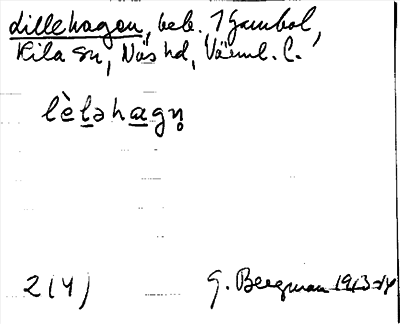 Lillehagen, beb. 1 Gambol,
Kila sn, Näs hd, Värml. l.
lèlahagn̥
2(4)
G. Bergman 1913-14